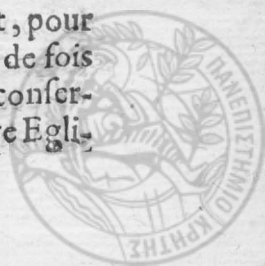 t, pour
de fois
conſer-
re Egli-
ΠΑΝΕΠΙΣΤΗΜΙΟ ΚΡΗΤΗΣ